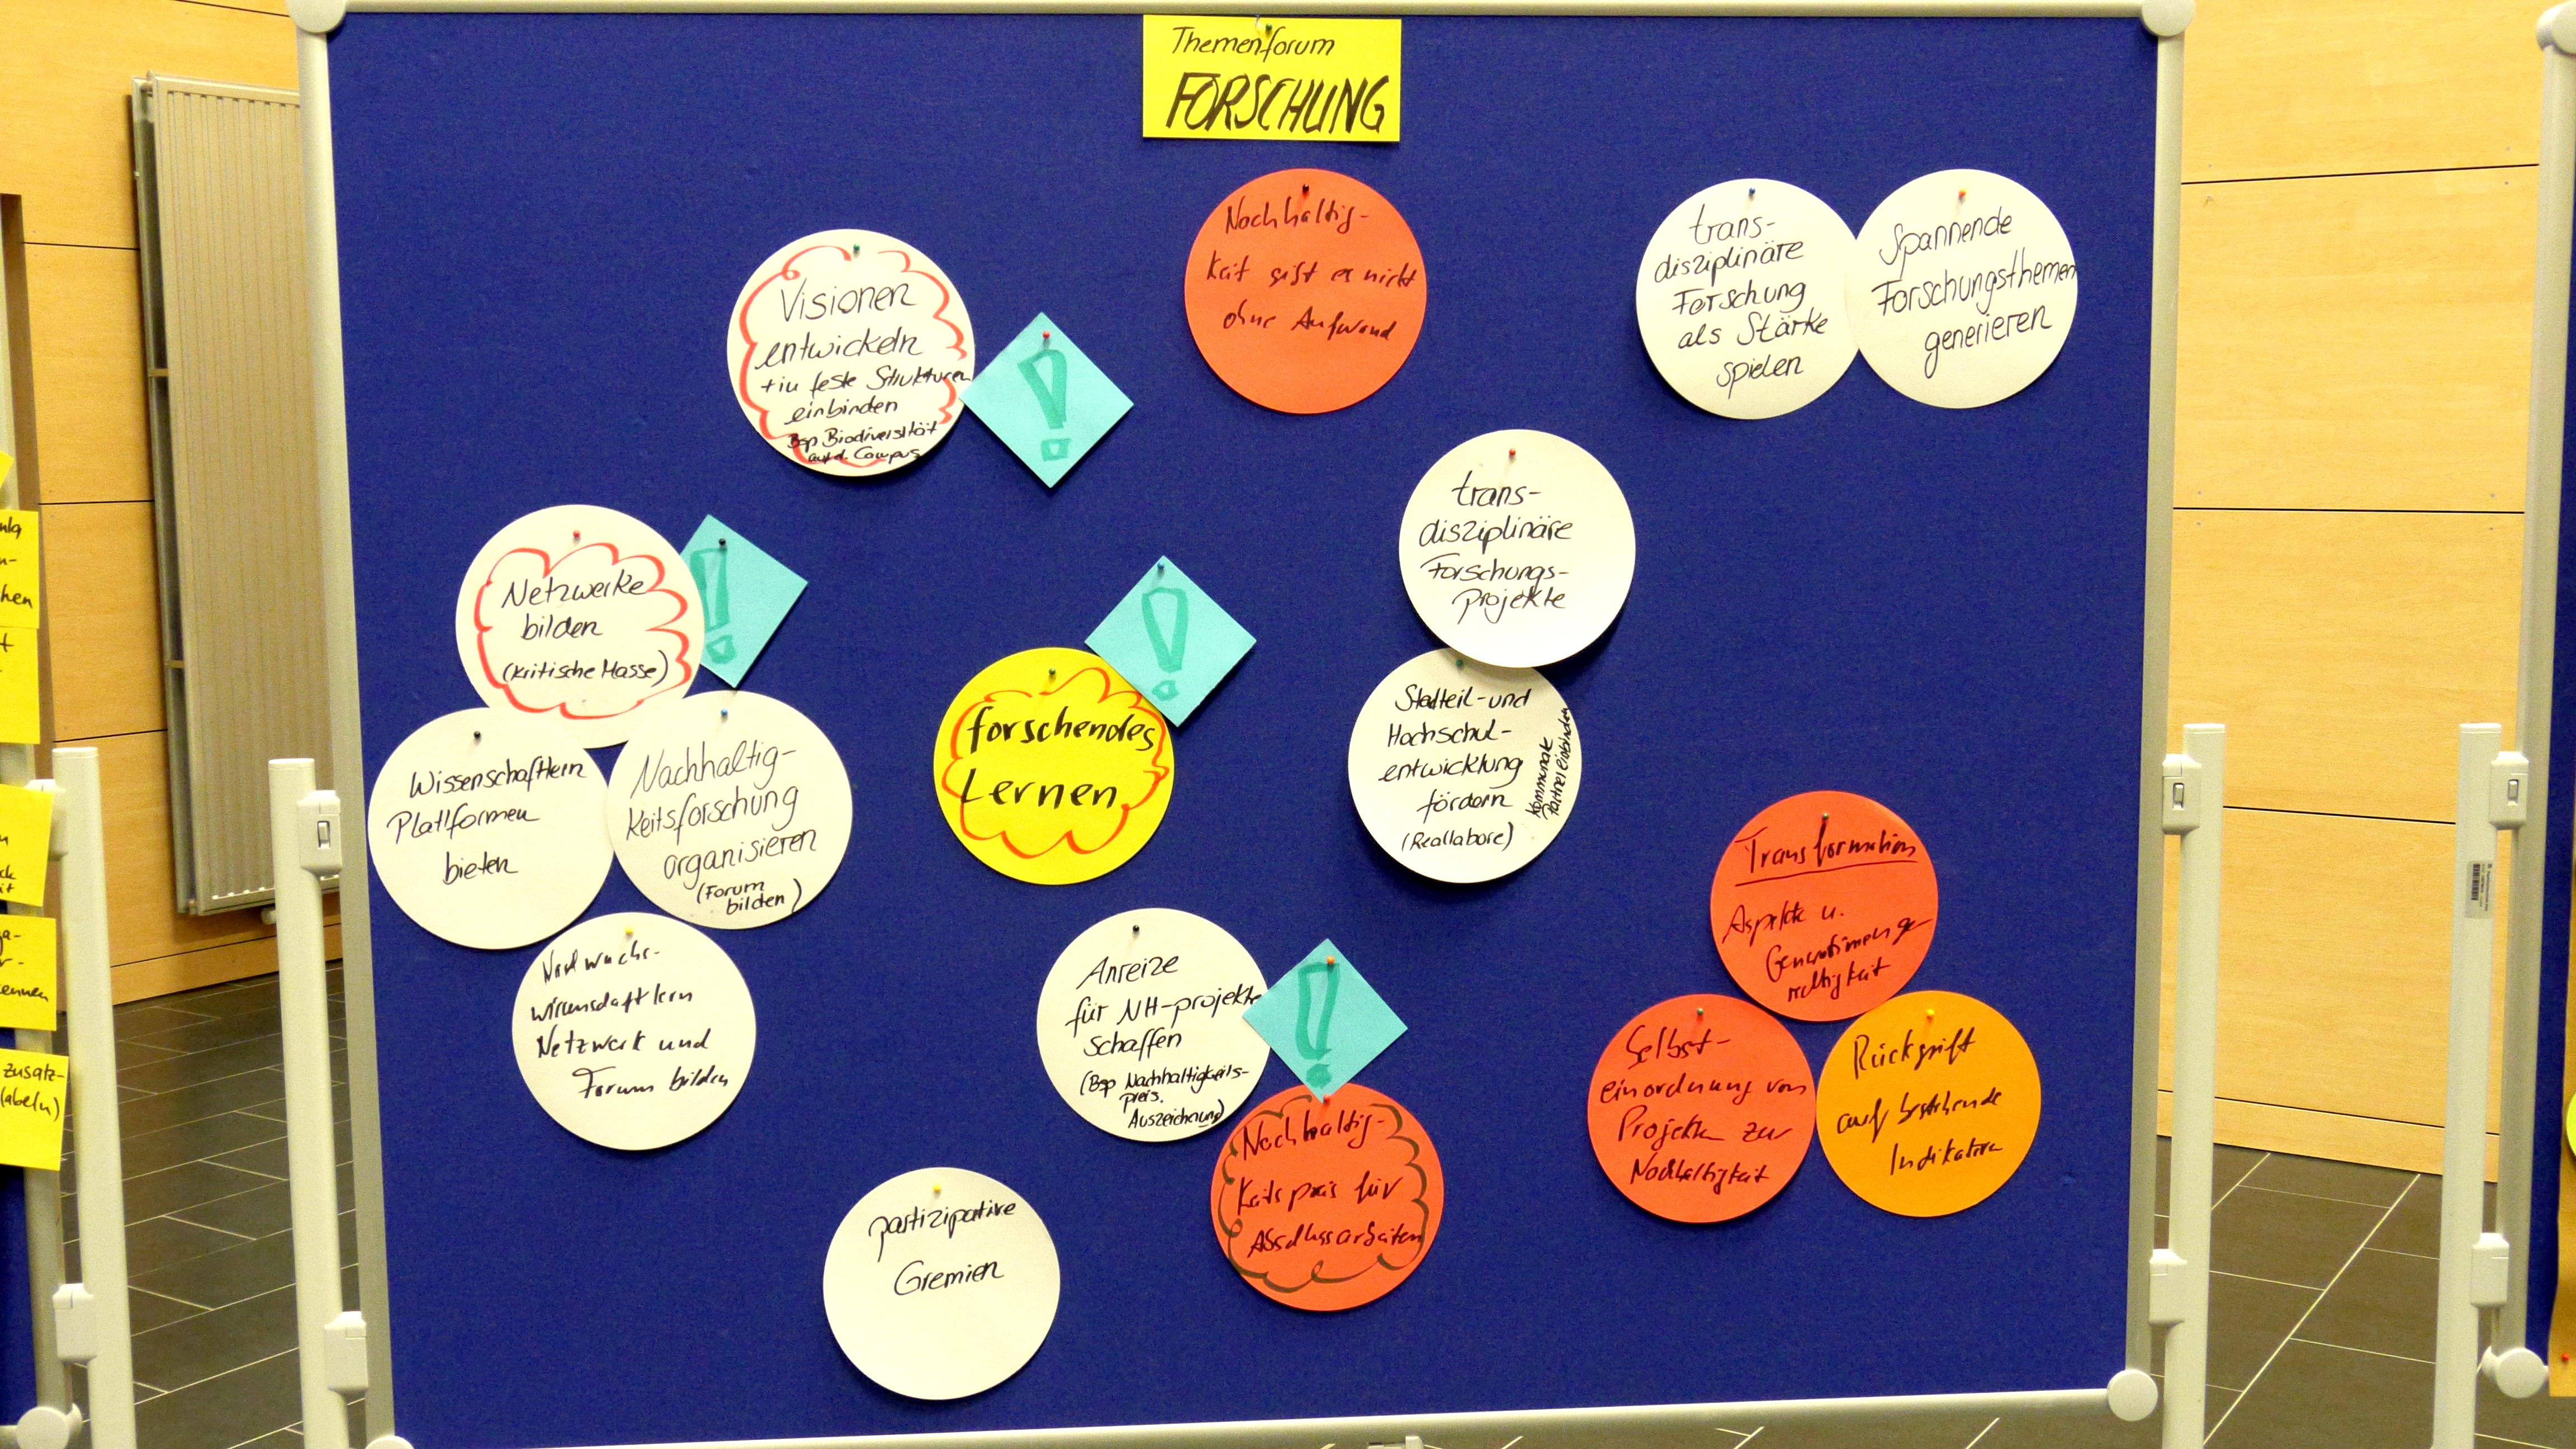 Themenforum
FORSCHUNG
Nachhaltig-
keit gibt es nicht
ohne Aufwand
trans-
disziplinäre
Forschung
als Stärke
spielen
Spannende
Forschungsthemen
generieren
Visionen
entwickeln
+ in feste Strukturen
einbinden
Bsp Biodiversität
auf d. Campus
!
trans-
disziplinäre
Forschungs-
projekte
Stadteil- und
Hochschul-
entwicklung
fördern
(Reallabore)
kommunale
Partner einbinden
Netzwerke
bilden
(kritische Masse)
!
Wissenschaftlern
Plattformen
bieten
Nachhaltig-
keitsforschung
organisieren
(Forum
bilden)
Nachwuchs-
wissenschaftlern
Netzwerk und
Forum bilden
!
forschendes
Lernen
Anreize
für NH-projekte
schaffen
(Bsp Nachhaltigkeits-
preis.
Auszeichnung)
!
Nachhaltig-
keitspreis für
Abschlussarbeiten
partizipative
Gremien
Transformation
Aspekte u.
Generationenge-
rechtigkeit
Selbst-
einordnung von
Projekten zur
Nachhaltigkeit
Rückgriff
auf bestehende
Indikatoren
hen
ennen
zusatz-